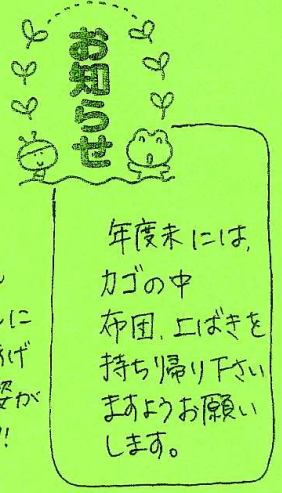 お知らせ
年度末には、
カゴの中
布団、上ばきを
持ち帰り下さい
ますようお願い
します。
に
げ
姿が
!!